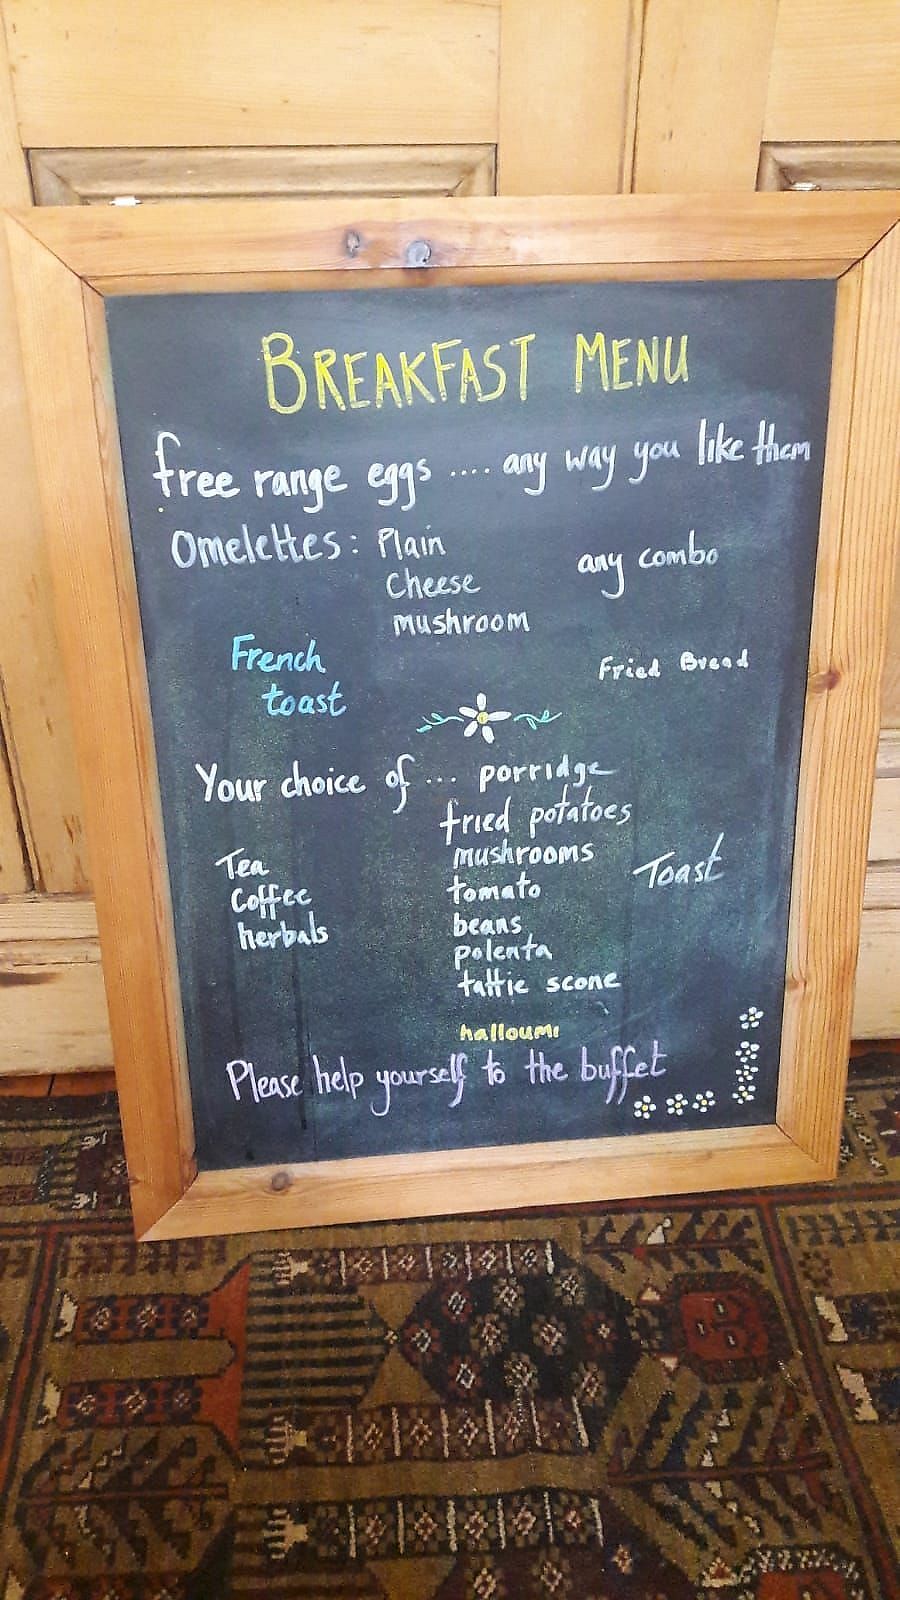 BREAKFAST MENU
free range eggs .... any way you like them
Omelettes: Plain any combo
Cheese
mushroom
French Fried Bread
toast
Your choice of ... porridge
fried potatoes
Tea mushrooms Toast
Coffee tomato
herbals beans
polenta
tattie scone
halloumi
Please help yourself to the buffet